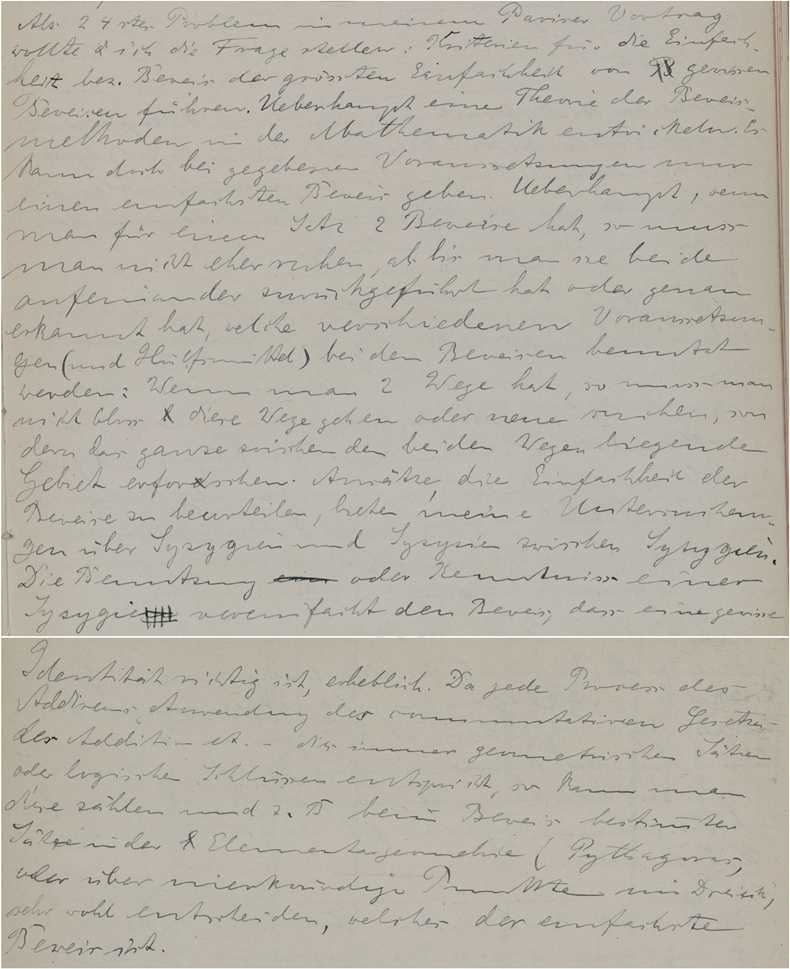 Als 24 ster Problem in meinem Pariser Vortrag
wollte ich die Frage stellen: Kriterien für die Einfach-
heit bez. Beweis der grössten Einfachheit von gewissen
Beweisen führen. Ueberhaupt eine Theorie der Beweis-
methoden in der Mathematik entwickeln. Es
kann doch bei gegebenen Voraussetzungen nur
einen einfachsten Beweis geben. Ueberhaupt, wenn
man für einen Satz 2 Beweise hat, so muss
man nicht eher ruhen, als bis man sie beide
aufeinander zurückgeführt hat oder genau
erkannt hat, welche verschiedenen Voraussetzun-
gen (und Hülfsmittel) bei den Beweisen benutzt
werden: Wenn man 2 Wege hat, so muss man
nicht bloss diese Wege gehen oder neue suchen, son
dern das ganze zwischen den beiden Wegen liegende
Gebiet erforschen. Ansätze, die Einfachheit der
Beweise zu beurteilen, bieten meine Untersuchun-
gen über Syzygien und Syzygien zwischen Syzygien.
Die Benutzung oder Kenntniss einer
Syzygie vereinfacht den Beweis, dass eine gewisse
Identität richtig ist, erheblich. Da jede Process des
Addirens Anwendung des commutativen Gesetzes
der Addition et. - dies immer geometrischen Sätzen
oder logischen Schlüssen entspricht, so kann man
diese zählen und z. B beim Beweis bestimmter
Sätze in der Elementargeometrie (Pythagoras,
oder über merkwürdige Punkte im Dreieck)
sehr wohl entscheiden, welches der einfachste
Beweis ist.